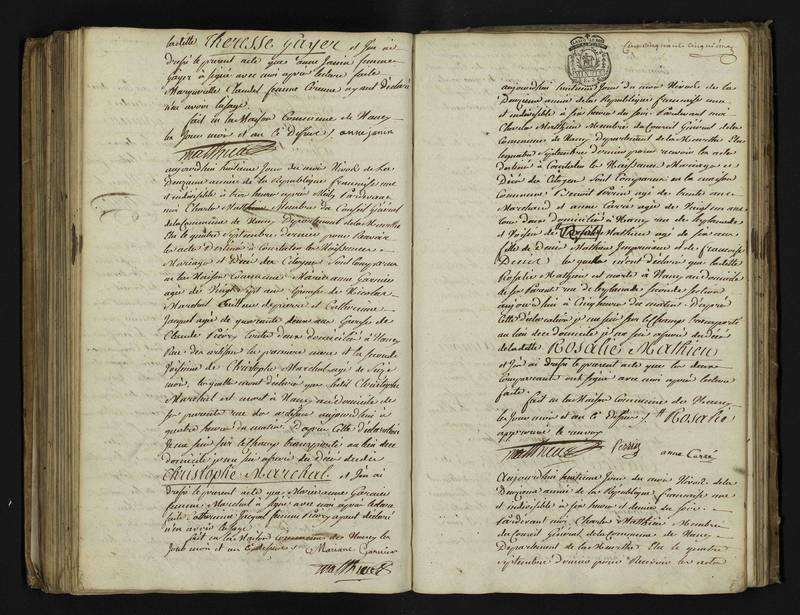 ladite Theresse Gayer et j'en ai
dressé le present acte que anne Janin femme
Gayer a signé avec moi après lecture faite
Marguerite Claudel femme ayant déclaré
n'en avoir l'usage.
fait en la Maison Commune de Nancy
les Jour mois et an Ci dessus / anne janin
Matthieu
aujourdhui huitieme Jour du mois Nivose de la
Deuxieme année de la Republique francaise une
et indivisible à heures après Midi Pardevant
moi Charles Mathieu Membre du Conseil Général
de la Commune de Nancy Département de la Meurthe
Elu le quatre Septembre dernier pour Recevoir
les actes Destinés à Constater les Naissances
Mariages et Décès des Citoyens sont Comparus
en la Maison Commune Marie anne Garnier
agée de Vingt ans Epouse de Nicolas
Marchal de pierre et Catherine
Jacquel agée de quarante deux ans Epouse de
Claude Picory toutes deux domiciliées à Nancy
Rue des artisans la premiere mere et la seconde
Voisinne de Christophe Marchal agé de Six
mois. lesquelles m'ont déclaré que ledit Christophe
Marchal est mort à Nancy au domicile de
ses parents rue des artisans aujourdhui à
quatre heures du matin. D'après Cette déclaration
Je me suis sur le champ transporté au lieu dudit
domicile je me suis assuré du Décès dudit
Christophe Marchal et j'en ai
dressé le present acte que Marie anne Garnier
femme Marchal a signé avec moi après lecture
faite Catherine Jacquel femme Picory ayant déclaré
n'en avoir l'usage
fait en la Maison commune de Nancy les
Jour mois et an Ci dessus / Mariane Garnier
Matthieu
Cent cinquante cinquième
aujourdhui huitieme Jour du mois Nivose de la
Deuxieme année de la Republique francaise une
et indivisible à six heures du soir. Pardevant moi
Charles Matthieu Membre du Conseil Général de la
Commune de Nancy Département de la Meurthe Elu
le quatre Septembre dernier pour recevoir les actes
destinés à Constater les Naissances Mariages et
Décès des Citoyens Sont Comparus en la maison
Commune Benoit Perrin agé de trente ans
Marchand et anne Carré agée de Vingt un ans
tous deux domiciliés à Nancy rue de l'esplanade
et Voisins de Rosalie Mathieu agée de six ans
fille de Didier Mathieu Imprimeur et de francoise
Didier lesquels m'ont déclaré que ladite
Rosalie Mathieu est morte à Nancy au domicile
de ses Parents rue de l'esplanade seconde section
aujourdhui à Cinq heures du matin. D'après
Cette déclaration je me suis sur le champ transporté
au lieu dudit domicile je me suis assuré du décès
de ladite Rosalie Mathieu
et j'en ai dressé le present acte que les deux
Comparants ont signé avec moi après lecture
faite.
fait en la Maison Commune de Nancy
les Jour mois et an Ci dessus / Rosalie
approuvé le renvoy
Matthieu Perrin anne Carré
Aujourdhui huitieme Jour du mois Nivose de la
Deuxieme année de la Republique francaise une
et indivisible à six heures et demies du soir.
Pardevant moi Charles Mathieu Membre
du Conseil Général de la Commune de Nancy
Département de la Meurthe Elu le quatre
Septembre dernier pour Recevoir les actes